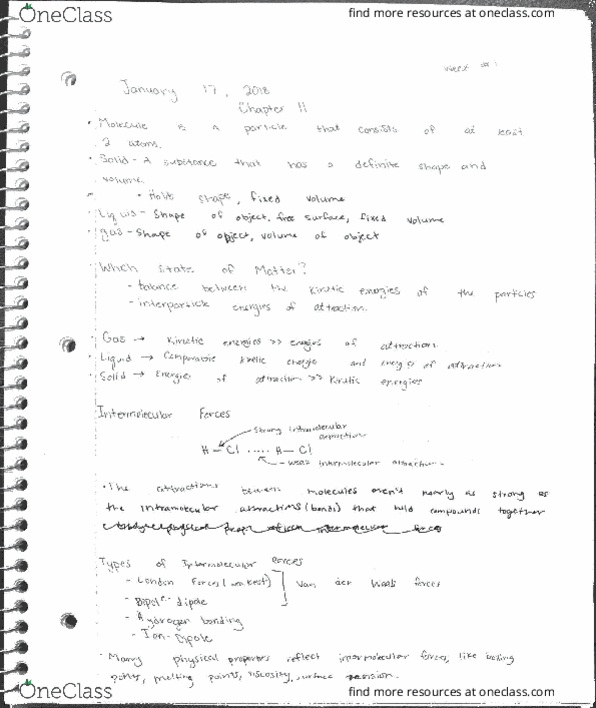 OneClass
find more resources at oneclass.com
January 17, 2018
Chapter 11
• Molecule is a particle that consists of at least
2 atoms.
• Solid - A substance that has a definite shape and
volume
• Holds shape, fixed volume
• Liquid - Shape of object, free surface, fixed volume
• gas - Shape of object, volume of object
Which State of Matter?
- balance between the kinetic energies of the particles
- interparticle energies of attraction.
Gas → Kinetic energies >> energies of attraction
• Liquid → Comparable kinetic energies and energies of attraction
• Solid → Energies of attraction >> Kinetic energies
Intermolecular Forces
Strong intramolecular
attraction
H - Cl ..... H - Cl
- weak intermolecular attraction
• The attractions between molecules aren't nearly as strong as
the intramolecular attractions (bonds) that hold compounds together
Types of Intermolecular Forces
- London Forces (weakest)
Van der Waals forces
- Dipole - dipole
- Hydrogen bonding
- Ion-Dipole
• Many physical properties reflect intermolecular forces, like boiling
points, melting points, viscosity, surface tension.
OneClass
find more resources at oneclass.com